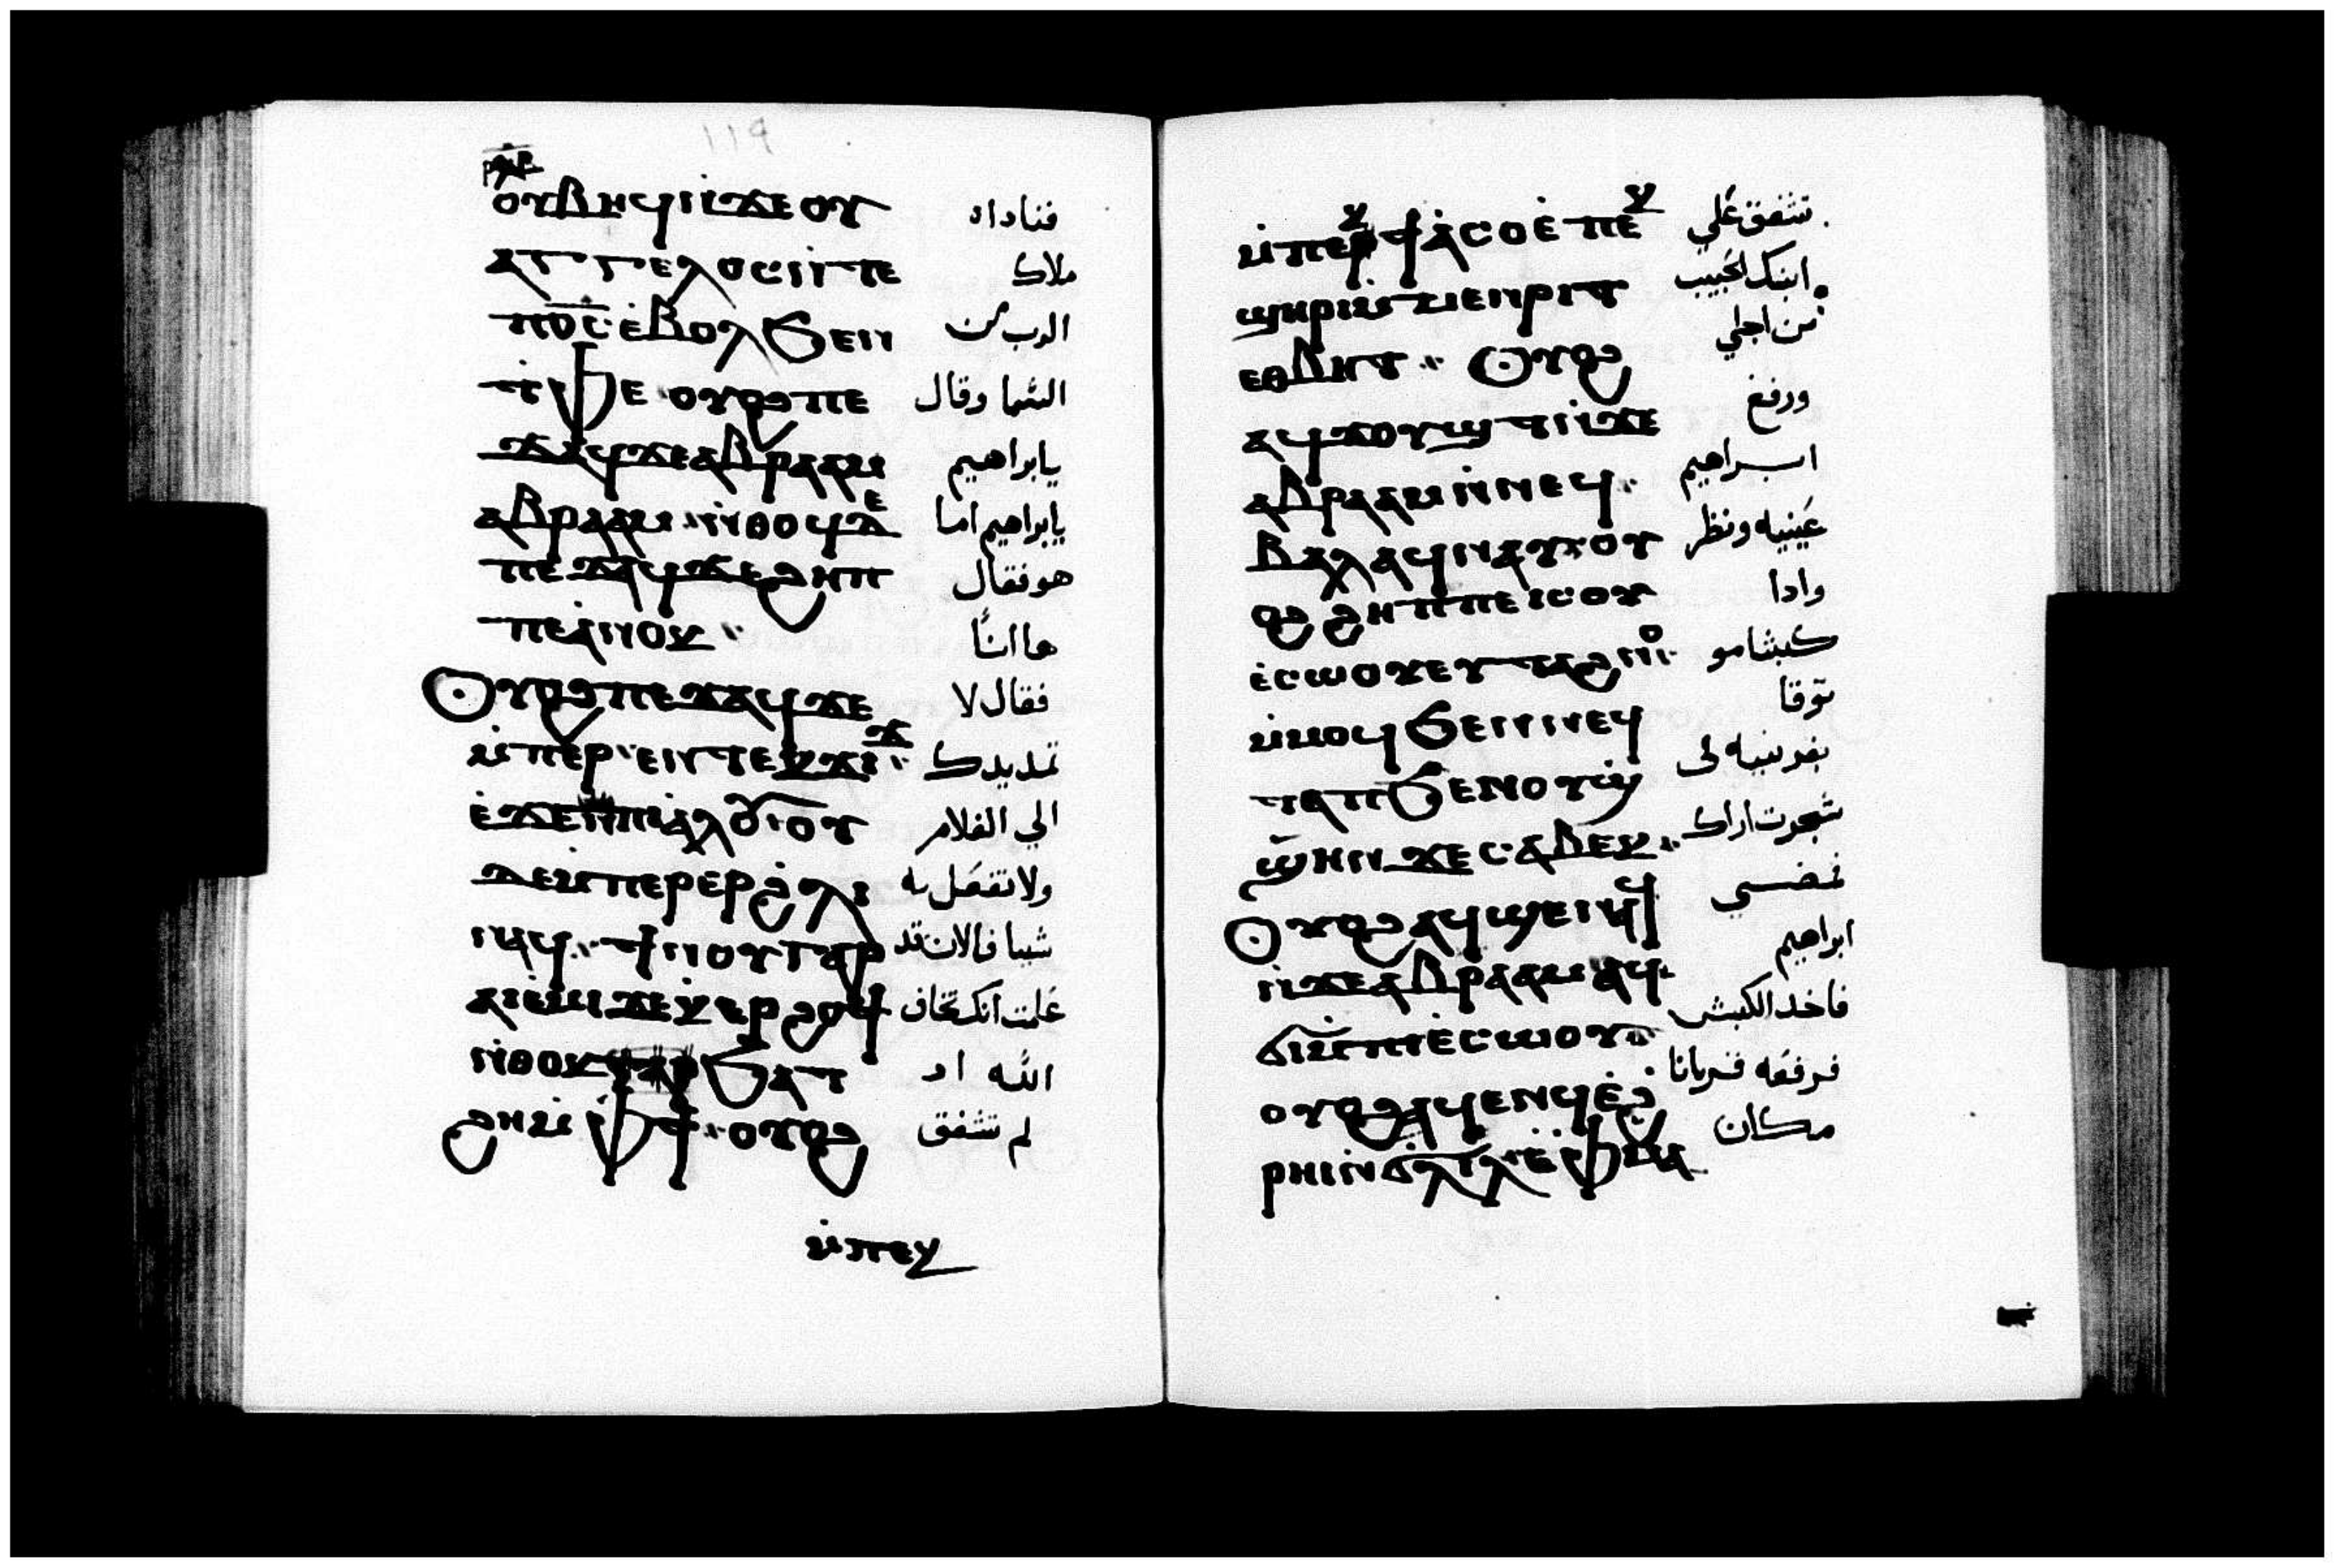 119
ⲟⲩⲃⲏϥ ⲛ̀ϫⲉ ⲟⲩ فناداه
ⲁⲅⲅⲉⲗⲟⲥ ⲛⲧⲉ ملاك
ⲡⲟ̅ⲥ̅ ⲉ̀ⲃⲟⲗ ϧⲉⲛ الرب من
ⲧ̀ⲫⲉ ⲟⲩⲟϩ ⲡⲉ السما وقال
ϫⲁϥ ϫⲉ ⲁⲃⲣⲁⲁⲙ يابراهيم
ⲁⲃⲣⲁⲁⲙ ⲛ̀ⲑⲟϥ ⲇⲉ يابراهيم اما
ⲡⲉϫⲁϥ ϫⲉ ϩⲏⲡ هو فقال
ⲡⲉ ⲁ̀ⲛⲟⲕ ها انا
ⲟⲩⲟϩ ⲡⲉϫⲁϥ ϫⲉ فقال لا
ⲙ̀ⲡⲉⲣ ⲉⲛ ⲧⲉⲕϫⲓϫ تمد يدك
ⲉ̀ϫⲉⲛ ⲡⲓⲁ̀ⲗⲟⲩ ⲟⲩ الي الغلام
ⲇⲉ ⲙ̀ⲡⲉⲣ ⲉⲣ ϩ̀ⲗⲓ ولا تفعل به
ⲛⲁϥ ϯⲛⲟⲩ ⲅⲁⲣ شيا فالان قد
ⲁⲓⲉ̀ⲙⲓ ϫⲉ ⲕ̀ⲉⲣϩⲟϯ علمت انك تخاف
ⲛ̀ⲑⲟⲕ ϧⲁⲧ الله اد
ϩⲏ ⲙ̀ⲫϯ ⲟⲩⲟϩ لم تشفق
ⲙ̀ⲡⲉⲕ
ⲙ̀ⲡⲉⲕϯⲁ̀ⲥⲟ ⲉ̀ⲡⲉⲕ تشفق علي
ϣⲏⲣⲓ ⲙ̀ⲙⲉⲛⲣⲓⲧ ابنك الحبيب
ⲉⲑⲃⲏⲧ ⲟⲩⲟϩ من اجلي
ⲁϥϫⲟⲩϣⲧ ⲛ̀ϫⲉ ورفع
ⲁⲃⲣⲁⲁⲙ ⲛ̀ⲛⲉϥ ابراهيم
ⲃⲁⲗ ⲁϥⲛⲁⲩ ⲟⲩ عينيه ونظر
ⲟϩ ϩⲏⲡⲡⲉ ⲓⲥ ⲟⲩ وادا
ⲉ̀ⲥⲱⲟⲩ ⲉⲩⲧⲁϩⲛⲟ كبشا مو
ⲙ̀ⲙⲟϥ ϧⲉⲛ ⲛⲉϥ توقا
ⲧⲁⲡ ϧⲉⲛ ⲟⲩϣ̀ بقرنيه في
ϣ̀ⲏⲛ ϫⲉ ⲥⲁⲃⲉⲕ شجرت اراك
ⲟⲩⲟϩ ⲁϥϣⲉⲛⲁϥ فمضي
ⲛ̀ϫⲉ ⲁⲃⲣⲁⲁⲙ ⲁϥ ابراهيم
ϭⲓ ⲙ̀ⲡⲓⲉ̀ⲥⲱⲟⲩ فاخد الكبش
ⲟⲩⲟϩ ⲁϥⲉⲛϥ ⲉ̀ϩ̀ فرفعه قربانا
ⲣⲏⲓ ⲛ̀ϭⲗⲓⲗ ⲉ̀ⲫ̀ⲙⲁ مكان